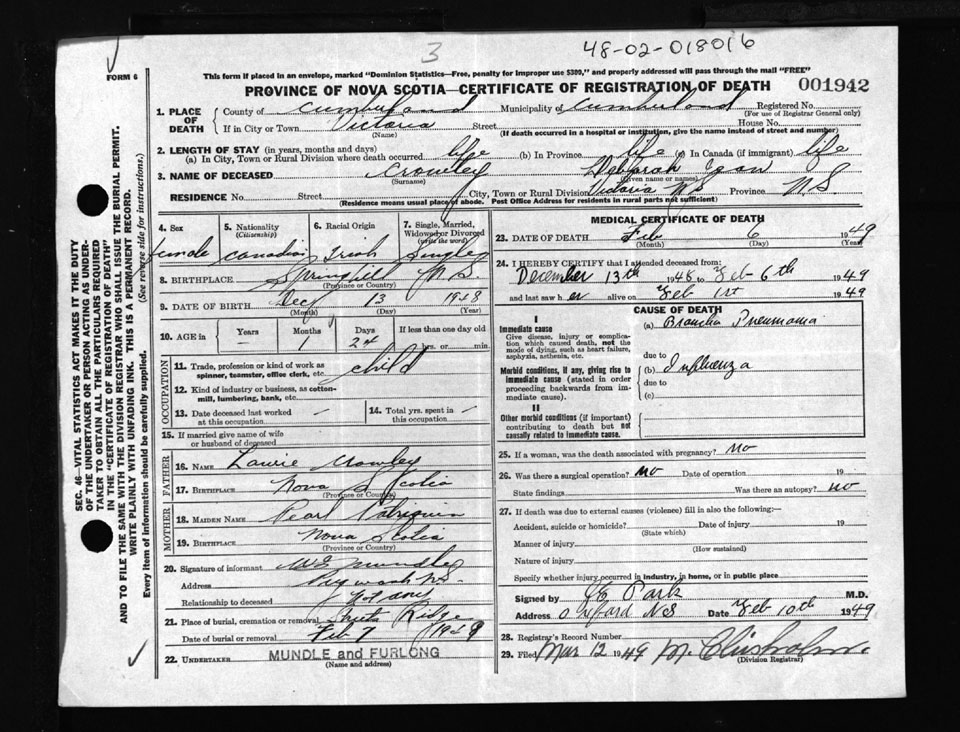 3
48-02-018016
FORM 6
This form if placed in an envelope, marked "Dominion Statistics—Free, penalty for improper use $300," and properly addressed will pass through the mail "FREE"
PROVINCE OF NOVA SCOTIA—CERTIFICATE OF REGISTRATION OF DEATH
001942
1. PLACE OF DEATH
County of Cumberland Municipality of Cumberland Registered No.
(For use of Registrar General only)
If in City or Town Victoria Street House No.
(Name) (If death occurred in a hospital or institution, give the name instead of street and number)
2. LENGTH OF STAY (in years, months and days)
(a) In City, Town or Rural Division where death occurred life (b) In Province life (c) In Canada (if immigrant) life
3. NAME OF DECEASED Crowley Deborah
(Surname) (Given name or names)
RESIDENCE No. Street City, Town or Rural Division Victoria NS Province NS
(Residence means usual place of abode. Post Office Address for residents in rural parts not sufficient)
4. Sex 5. Nationality (Citizenship) 6. Racial Origin 7. Single, Married, Widowed or Divorced (write the word)
Female Canadian Irish Single
8. BIRTHPLACE Springhill N.S.
(Province or Country)
9. DATE OF BIRTH Dec 13 1948
(Month) (Day) (Year)
10. AGE in Years Months Days If less than one day old
— 1 24 hrs. or min.
OCCUPATION
11. Trade, profession or kind of work as spinner, teamster, office clerk, etc. child
12. Kind of industry or business, as cotton-mill, lumbering, bank, etc.
13. Date deceased last worked at this occupation —
14. Total yrs. spent in this occupation —
15. If married give name of wife or husband of deceased
FATHER
16. NAME Laurie Crowley
17. BIRTHPLACE Nova Scotia
(Province or Country)
MOTHER
18. MAIDEN NAME Pearl Patriquin
19. BIRTHPLACE Nova Scotia
(Province or Country)
20. Signature of informant Mundle
Address Pugwash N.S.
Relationship to deceased Not any
21. Place of burial, cremation or removal Ridge
Date of burial or removal Feb 7 1949
22. UNDERTAKER MUNDLE and FURLONG
(Name and address)
MEDICAL CERTIFICATE OF DEATH
23. DATE OF DEATH Feb 6 1949
(Month) (Day) (Year)
24. I HEREBY CERTIFY that I attended deceased from:
December 13th 1948 to Feb 6th 1949
and last saw her alive on Feb 1st 1949
CAUSE OF DEATH
I
Immediate cause
Give disease, injury or complication which caused death, not the mode of dying, such as heart failure, asphyxia, asthenia, etc.
(a) Broncho Pneumonia
due to
Morbid conditions, if any, giving rise to immediate cause (stated in order proceeding backwards from immediate cause).
(b) Influenza
due to
(c)
II
Other morbid conditions (if important) contributing to death but not causally related to immediate cause.
25. If a woman, was the death associated with pregnancy? No
26. Was there a surgical operation? No Date of operation 19
State findings Was there an autopsy? no
27. If death was due to external causes (violence) fill in also the following:—
Accident, suicide or homicide? Date of injury 19
(State which)
Manner of injury
(How sustained)
Nature of injury
Specify whether injury occurred in industry, in home, or in public place
Signed by Park M.D.
Address Oxford NS Date Feb 10th 1949
28. Registrar's Record Number
29. Filed Mar 12 1949 M. Chisholm
(Division Registrar)
SEC. 46—VITAL STATISTICS ACT MAKES IT THE DUTY
OF THE UNDERTAKER OR PERSON ACTING AS UNDERTAKER TO OBTAIN ALL THE PARTICULARS REQUIRED
IN THE "CERTIFICATE OF REGISTRATION OF DEATH"
AND TO FILE THE SAME WITH THE DIVISION REGISTRAR WHO SHALL ISSUE THE BURIAL PERMIT.
WRITE PLAINLY WITH UNFADING INK. THIS IS A PERMANENT RECORD.
Every item of Information should be carefully supplied. (See reverse side for instructions.)